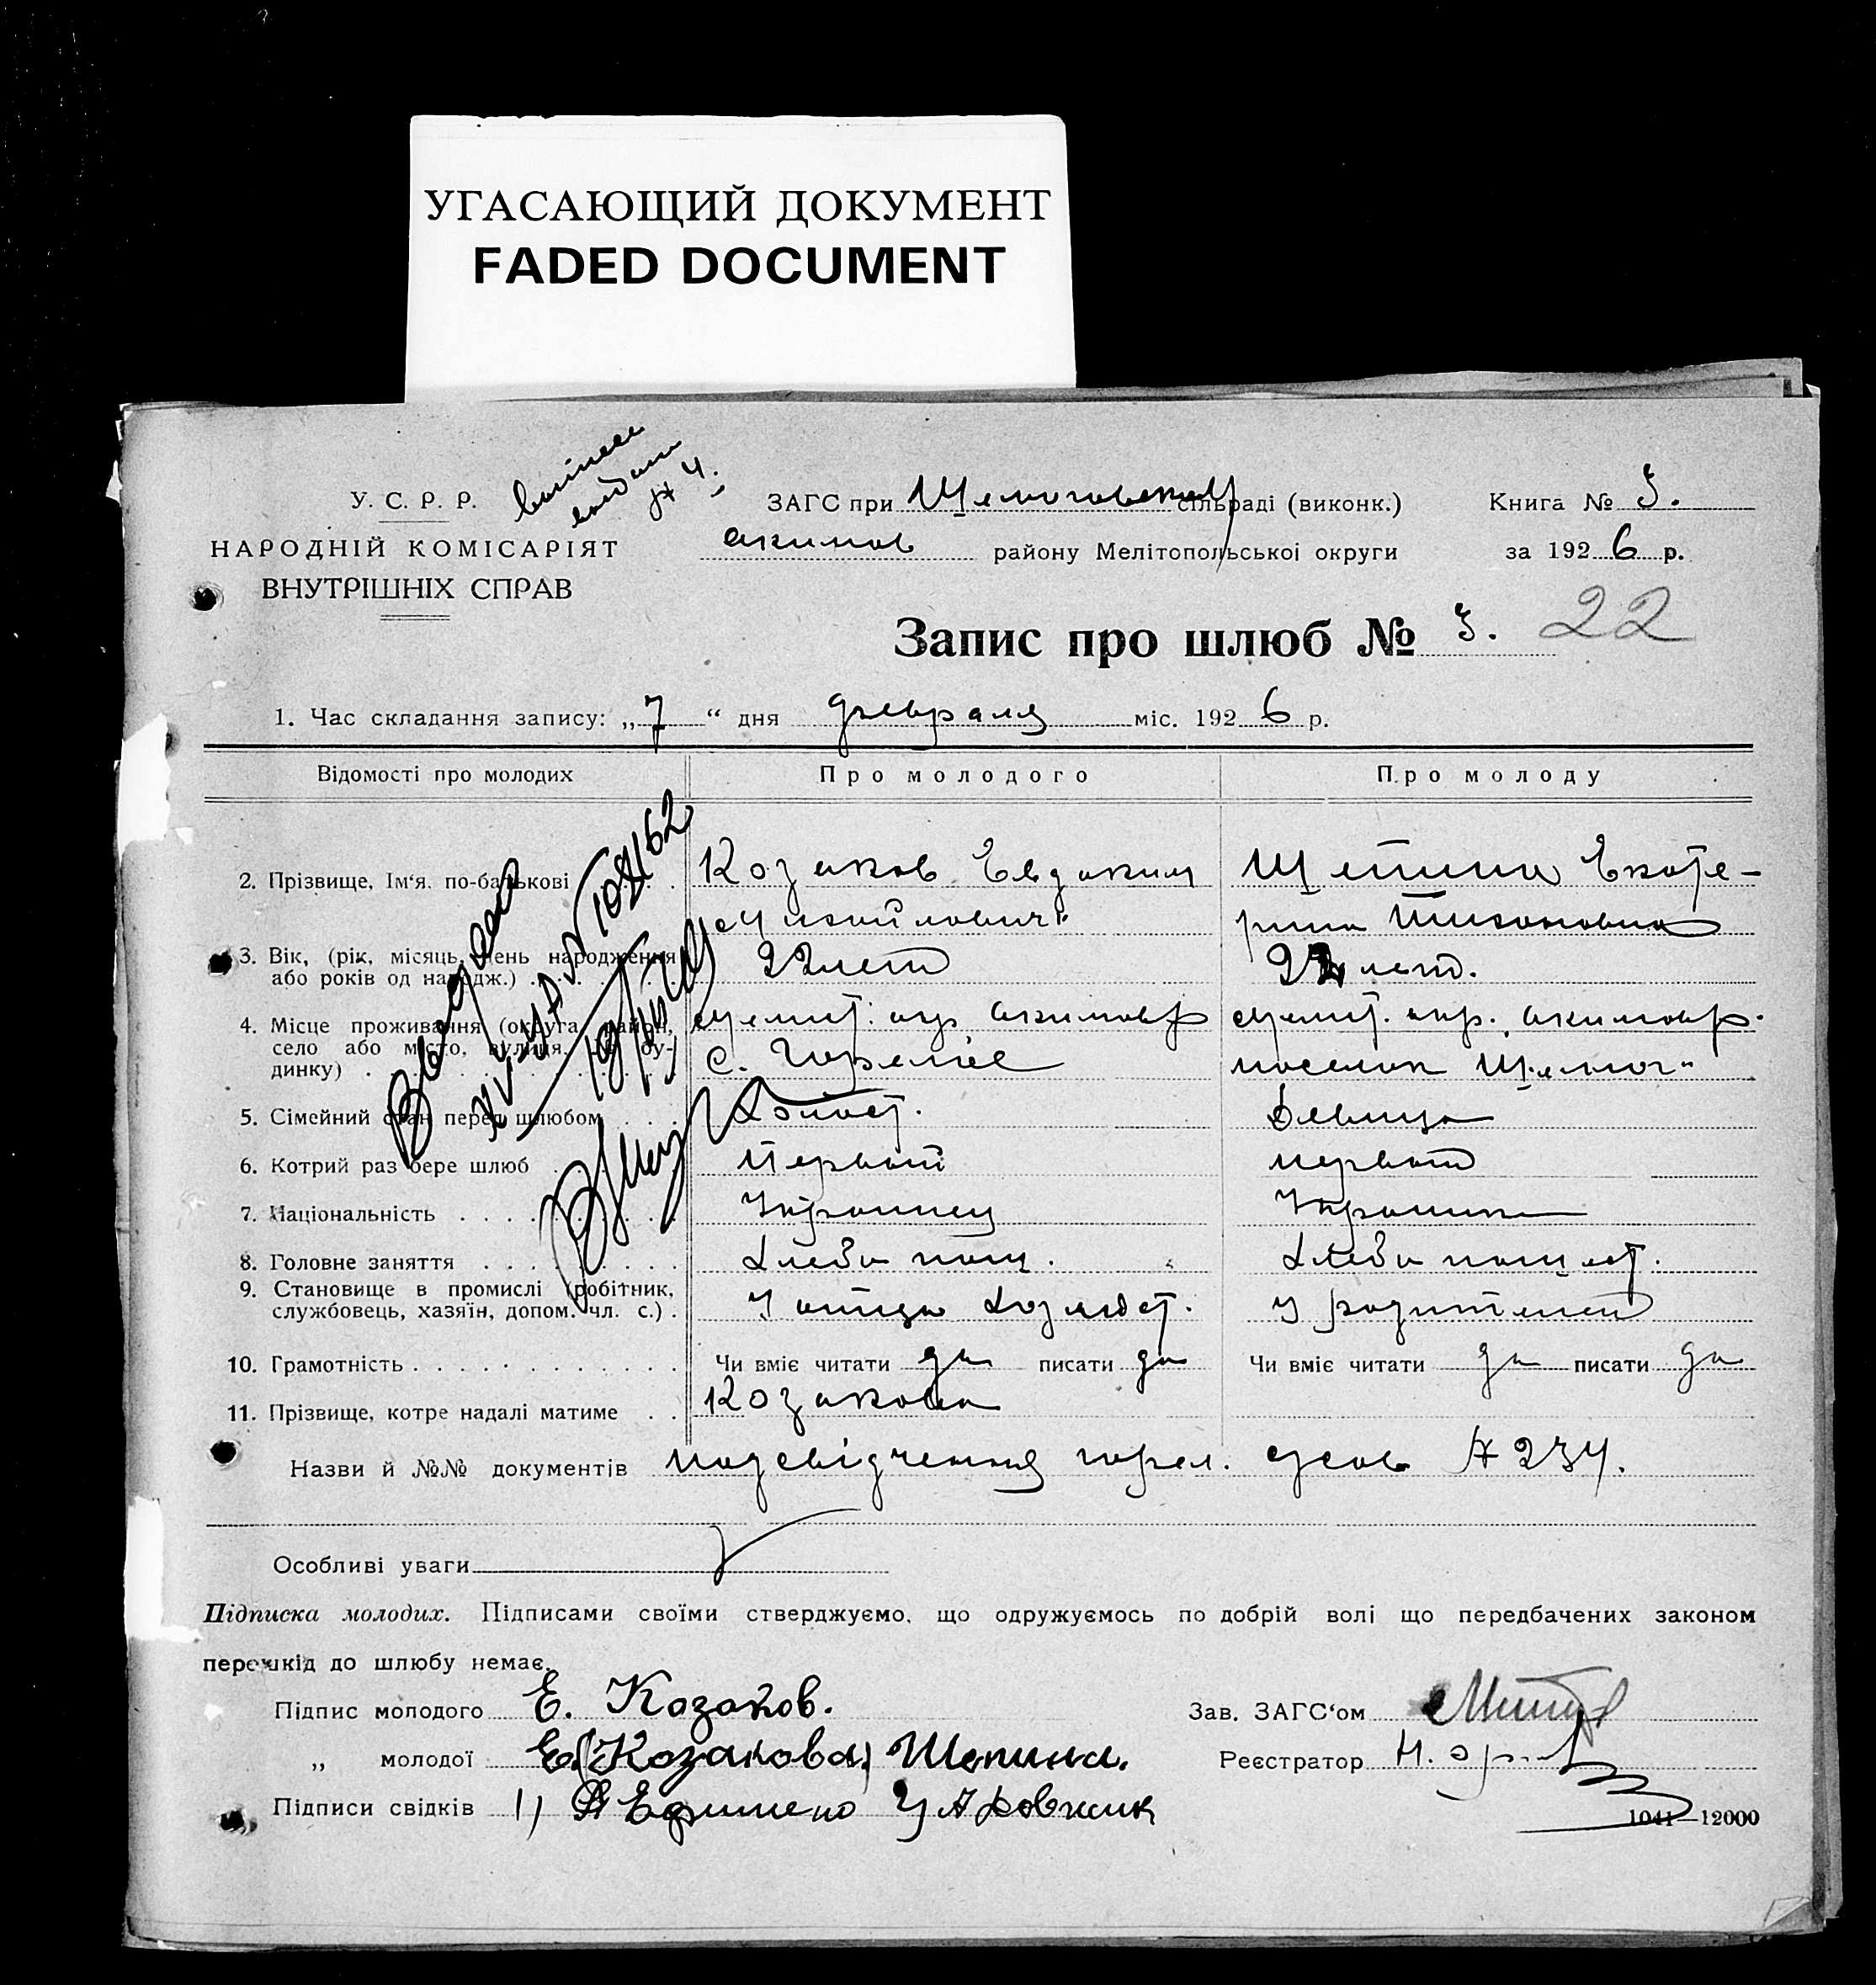 УГАСАЮЩИЙ ДОКУМЕНТ
FADED DOCUMENT
У. С. Р. Р.
НАРОДНІЙ КОМІСАРІЯТ
ВНУТРІШНІХ СПРАВ
ЗАГС при сільраді (виконк.)
Книга № 3.
акимов району Мелітопольської округи
за 1926 р.
Запис про шлюб № 3. 22
1. Час складання запису: „7“ дня февраля міс. 1926 р.
Відомості про молодих Про молодого Про молоду
2. Прізвище, Ім'я, по-батькові . . . Козаков Евдоким Щепина Екате-
Михайлович рина Тихоновна
3. Вік, (рік, місяць, день народження 22 лет 22 лет.
або років од народж.) . . .
4. Місце проживання (округа, район, Мелит. окр акимов р Мелит. окр. акимов р.
село або місто, вулиця, № бу-
динку) . . . с. Горелое поселок Щемог"
5. Сімейний стан перед шлюбом . . . Холост. Девица
6. Котрий раз бере шлюб . . . Первый первый
7. Національність . . . Украинец Украинка
8. Головне заняття . . . Хлебопаш. Хлебопашест.
9. Становище в промислі (робітник,
службовець, хазяїн, допом. чл. с.) . У отца хозяйст. У родителей
10. Грамотність . . . Чи вміє читати да писати да Чи вміє читати да писати да
11. Прізвище, котре надалі матиме . . Козакова
Назви й №№ документів посвідчення горел. № 234.
Особливі уваги
Підписка молодих. Підписами своїми стверджуємо, що одружуємось по добрій волі що передбачених законом
перешкід до шлюбу немає.
Підпис молодого Е. Козаков.
Зав. ЗАГС'ом
„ молодої Е. (Козакова) Щепина.
Реєстратор
Підписи свідків 1)
1041—12000